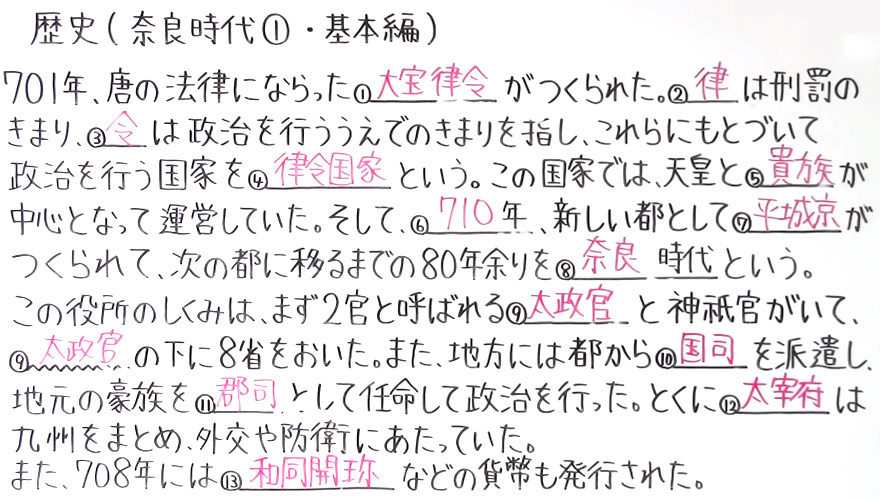 歴史(奈良時代①・基本編)
701年、唐の法律にならった①大宝律令がつくられた。②律は刑罰の
きまり、③令は政治を行ううえでのきまりを指し、これらにもとづいて
政治を行う国家を④律令国家という。この国家では、天皇と⑤貴族が
中心となって運営していた。そして、⑥710年、新しい都として⑦平城京が
つくられて、次の都に移るまでの80年余りを⑧奈良時代という。
この役所のしくみは、まず2官と呼ばれる⑨太政官と神祇官がいて、
⑨太政官の下に8省をおいた。また、地方には都から⑩国司を派遣し、
地元の豪族を⑪郡司として任命して政治を行った。とくに⑫太宰府は
九州をまとめ、外交や防衛にあたっていた。
また、708年には⑬和同開珎などの貨幣も発行された。